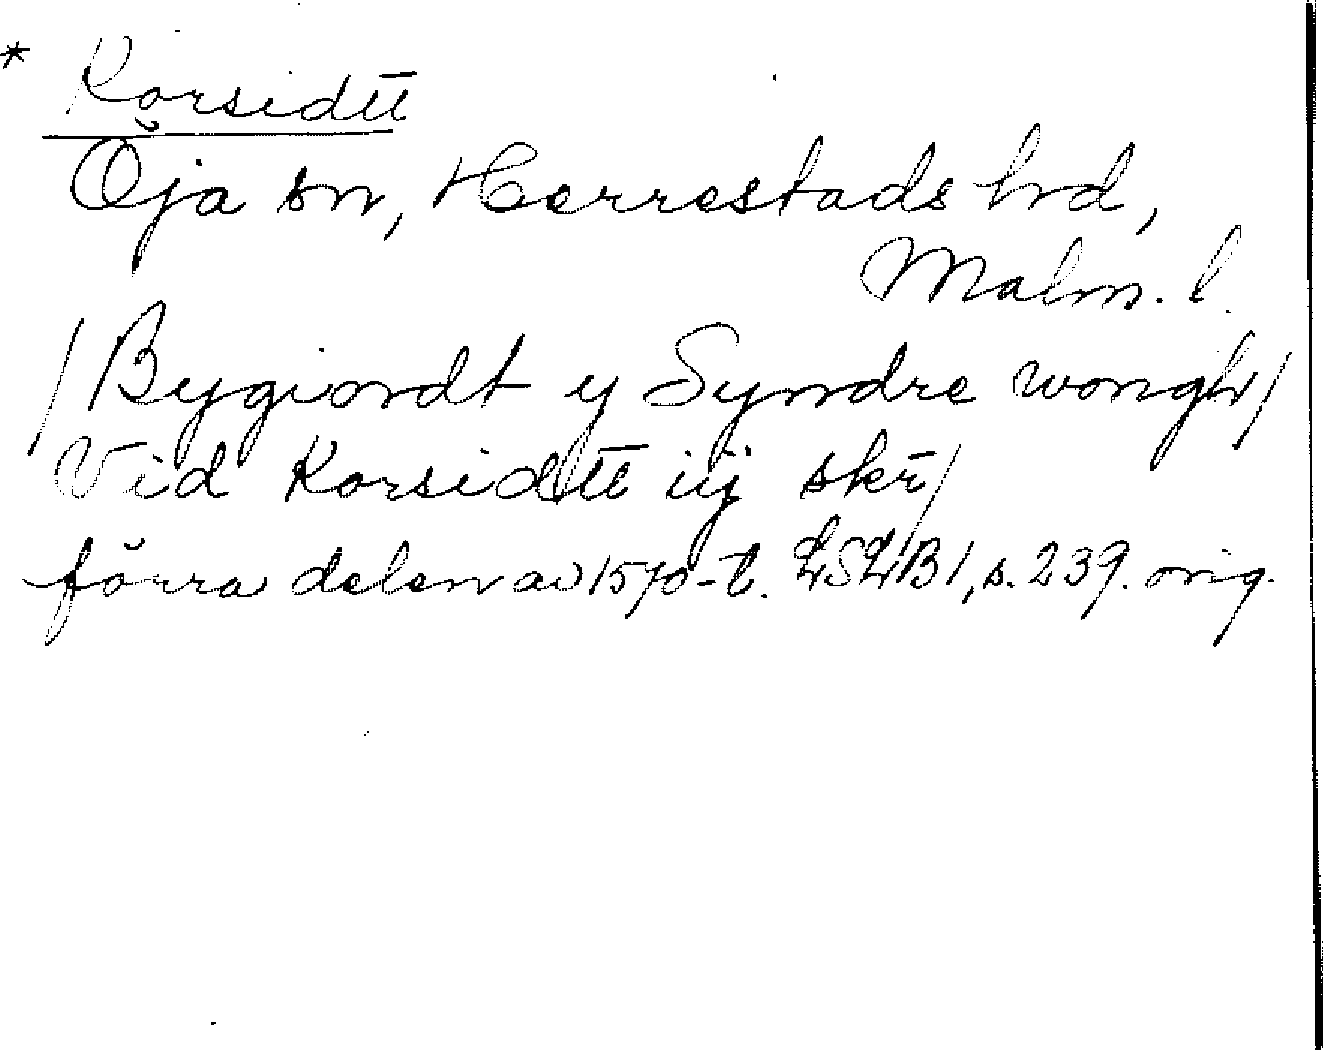 * Korsidtt
Öja sn, Herrestads hrd,
Malm. l.
/Bygiordt y Syndre wongh/
Vid Korsidtt iij skr/
förra delen av 1570-t. LSLB1, s. 239. orig.